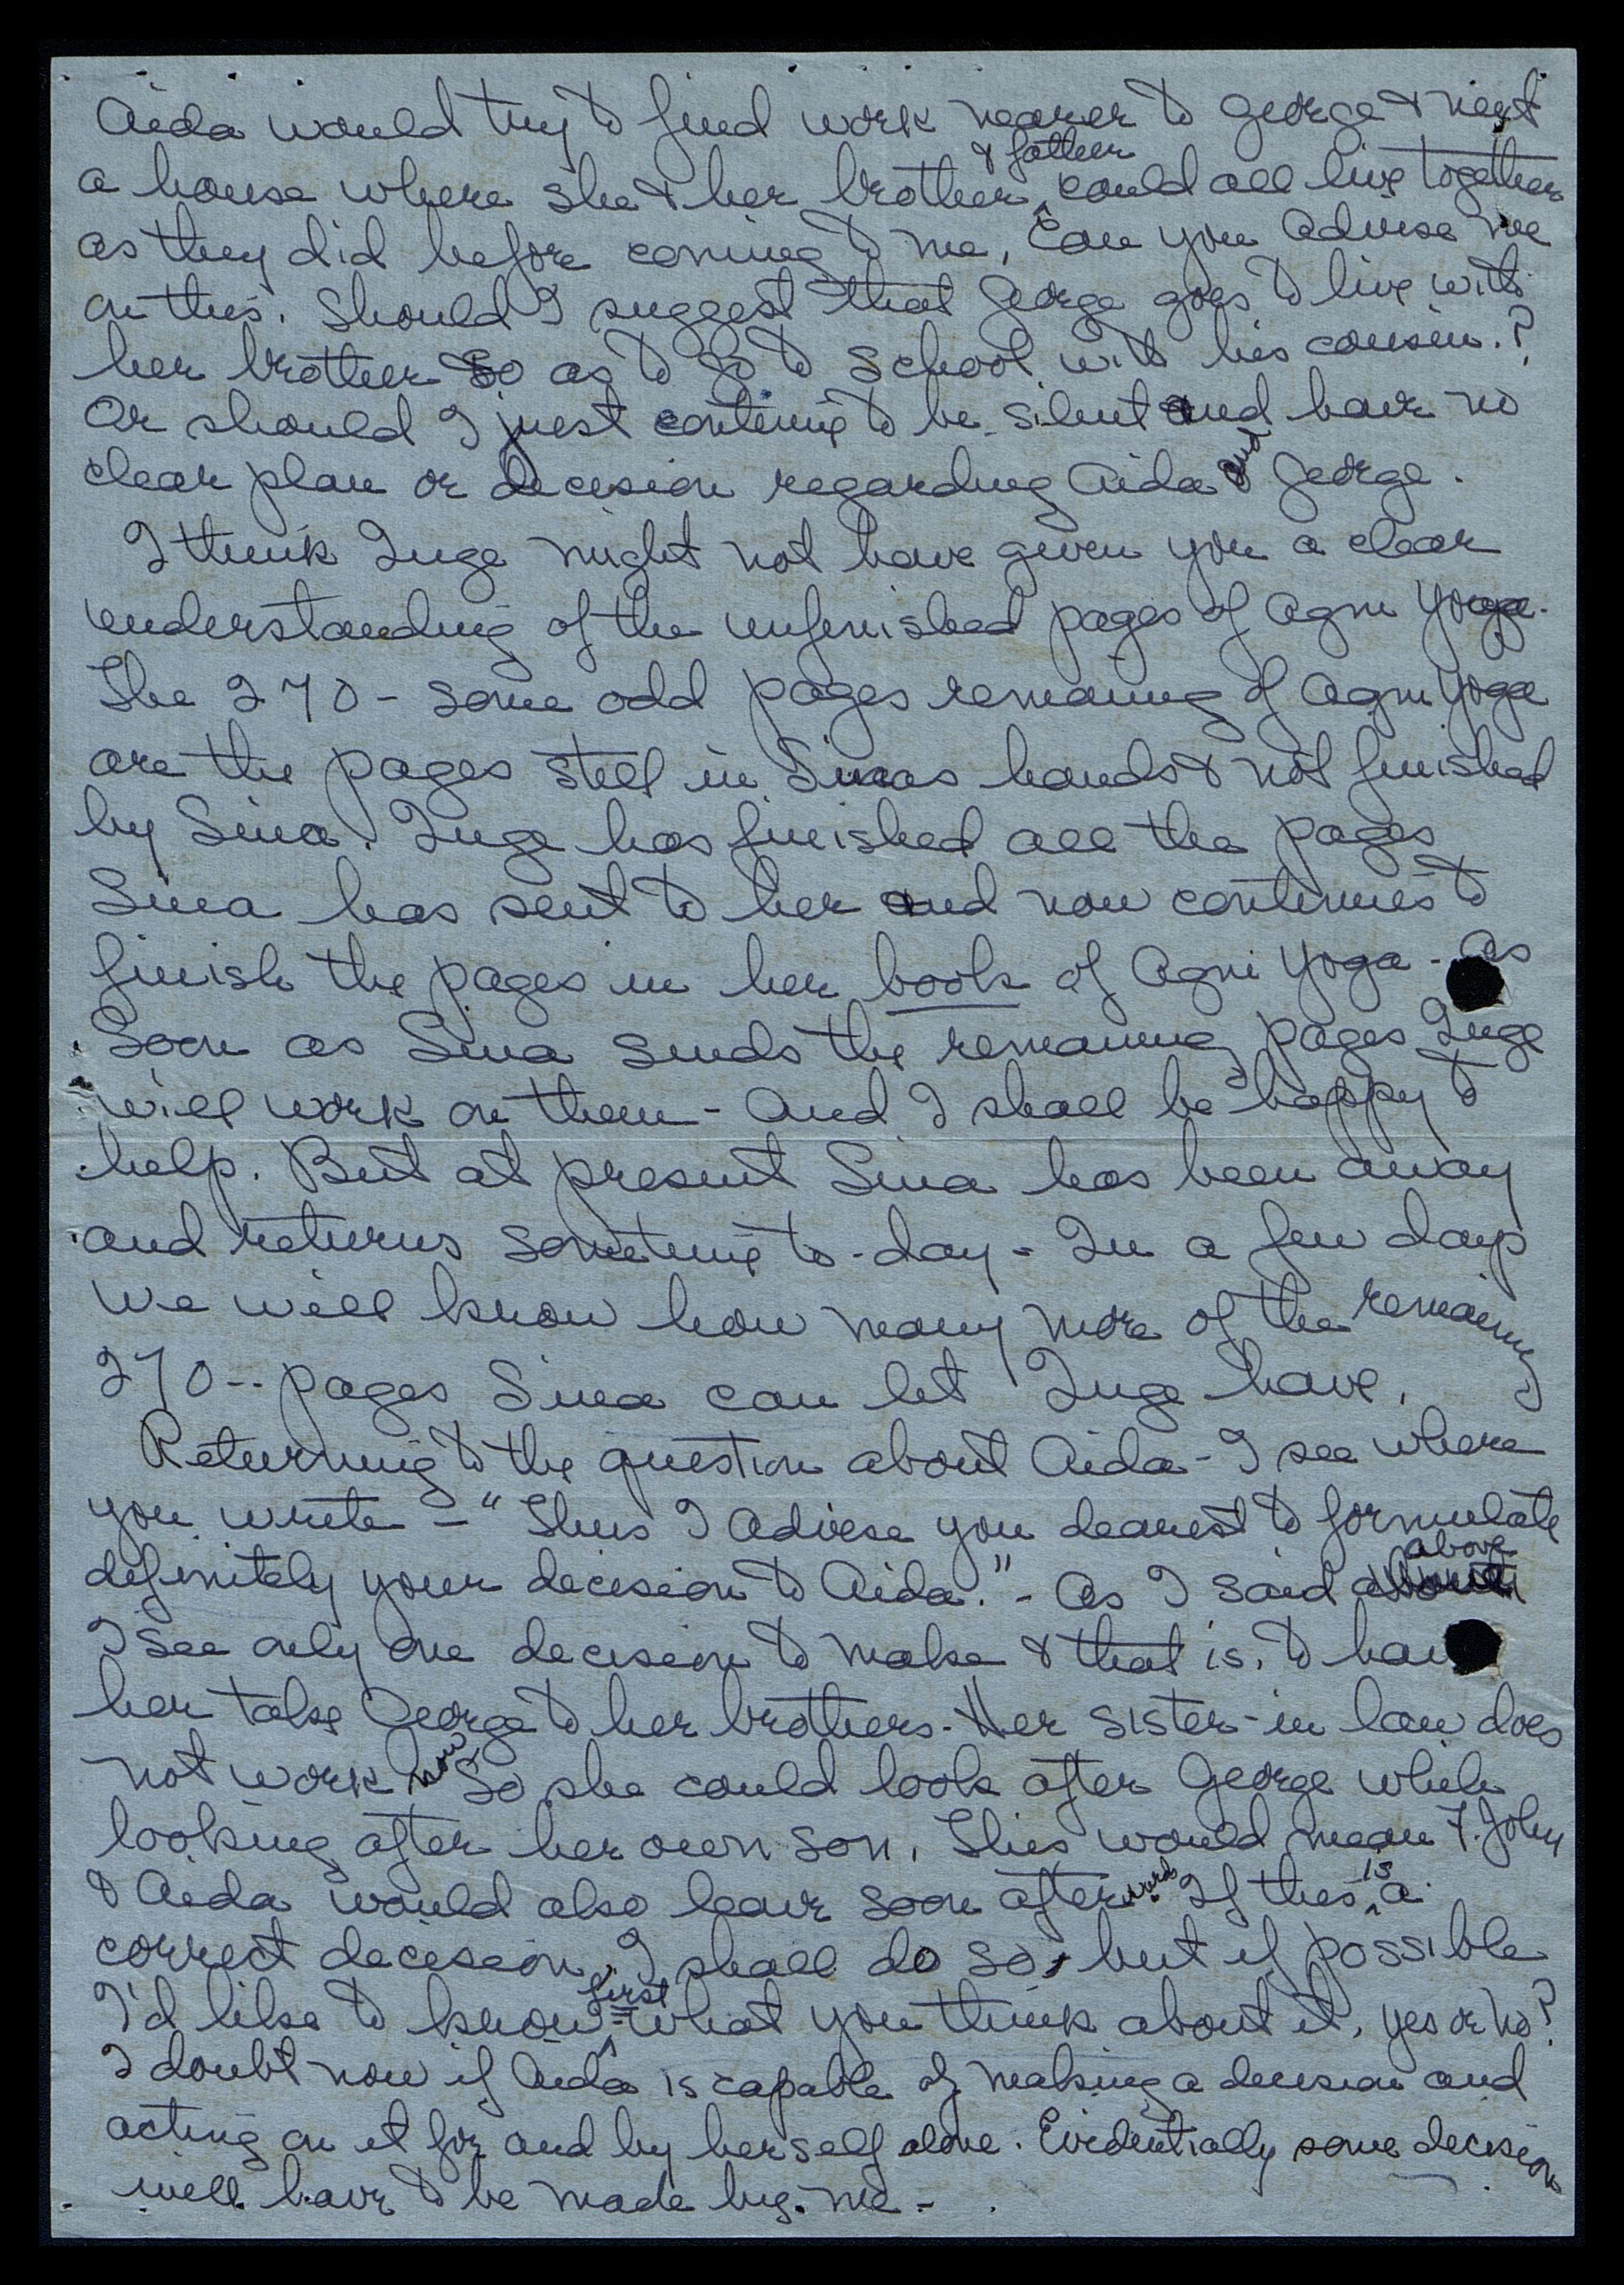 Aida would try to find work nearer to George & rent
a house where she & her brother & father could all live together
as they did before coming to me, Can you advise me
on this. Should I suggest that George goes to live with
her brother so as to go to school with his cousin.?
Or should I just continue to be silent and have no
clear plan or decision regarding Aida and George.
I think Inge might not have given you a clear
understanding of the unfinished pages of Agni Yoga.
The 270 - some odd pages remaining of Agni Yoga
are the pages still in Sinas hands & not finished
by Sina. Inge has finished all the pages
Sina has sent to her and now continues to
finish the pages in her book of Agni Yoga - As
Soon as Sina sends the remaining pages Inge
will work on them - And I shall be happy to
help. But at present Sina has been away
and returns sometime to-day - In a few days
we will know how many more of the remaining
270-- pages Sina can let Inge have.
Returning to the question about Aida - I see where
you write - "Thus I Advise you dearest to formulate
definitely your decision to Aida." - As I said above
I see only one decision to make & that is, to have
her take George to her brothers - Her sister-in law does
not work now So she could look after George while
looking after her own son. This would mean F. John
& Aida would also leave soon afterward. If this is a
correct decision, I shall do so, but if possible
I'd like to know first what you think about it, yes or no?
I doubt now if Aida is capable of making a decision and
acting on it for and by herself alone. Evidentially some decision
will have to be made by me -